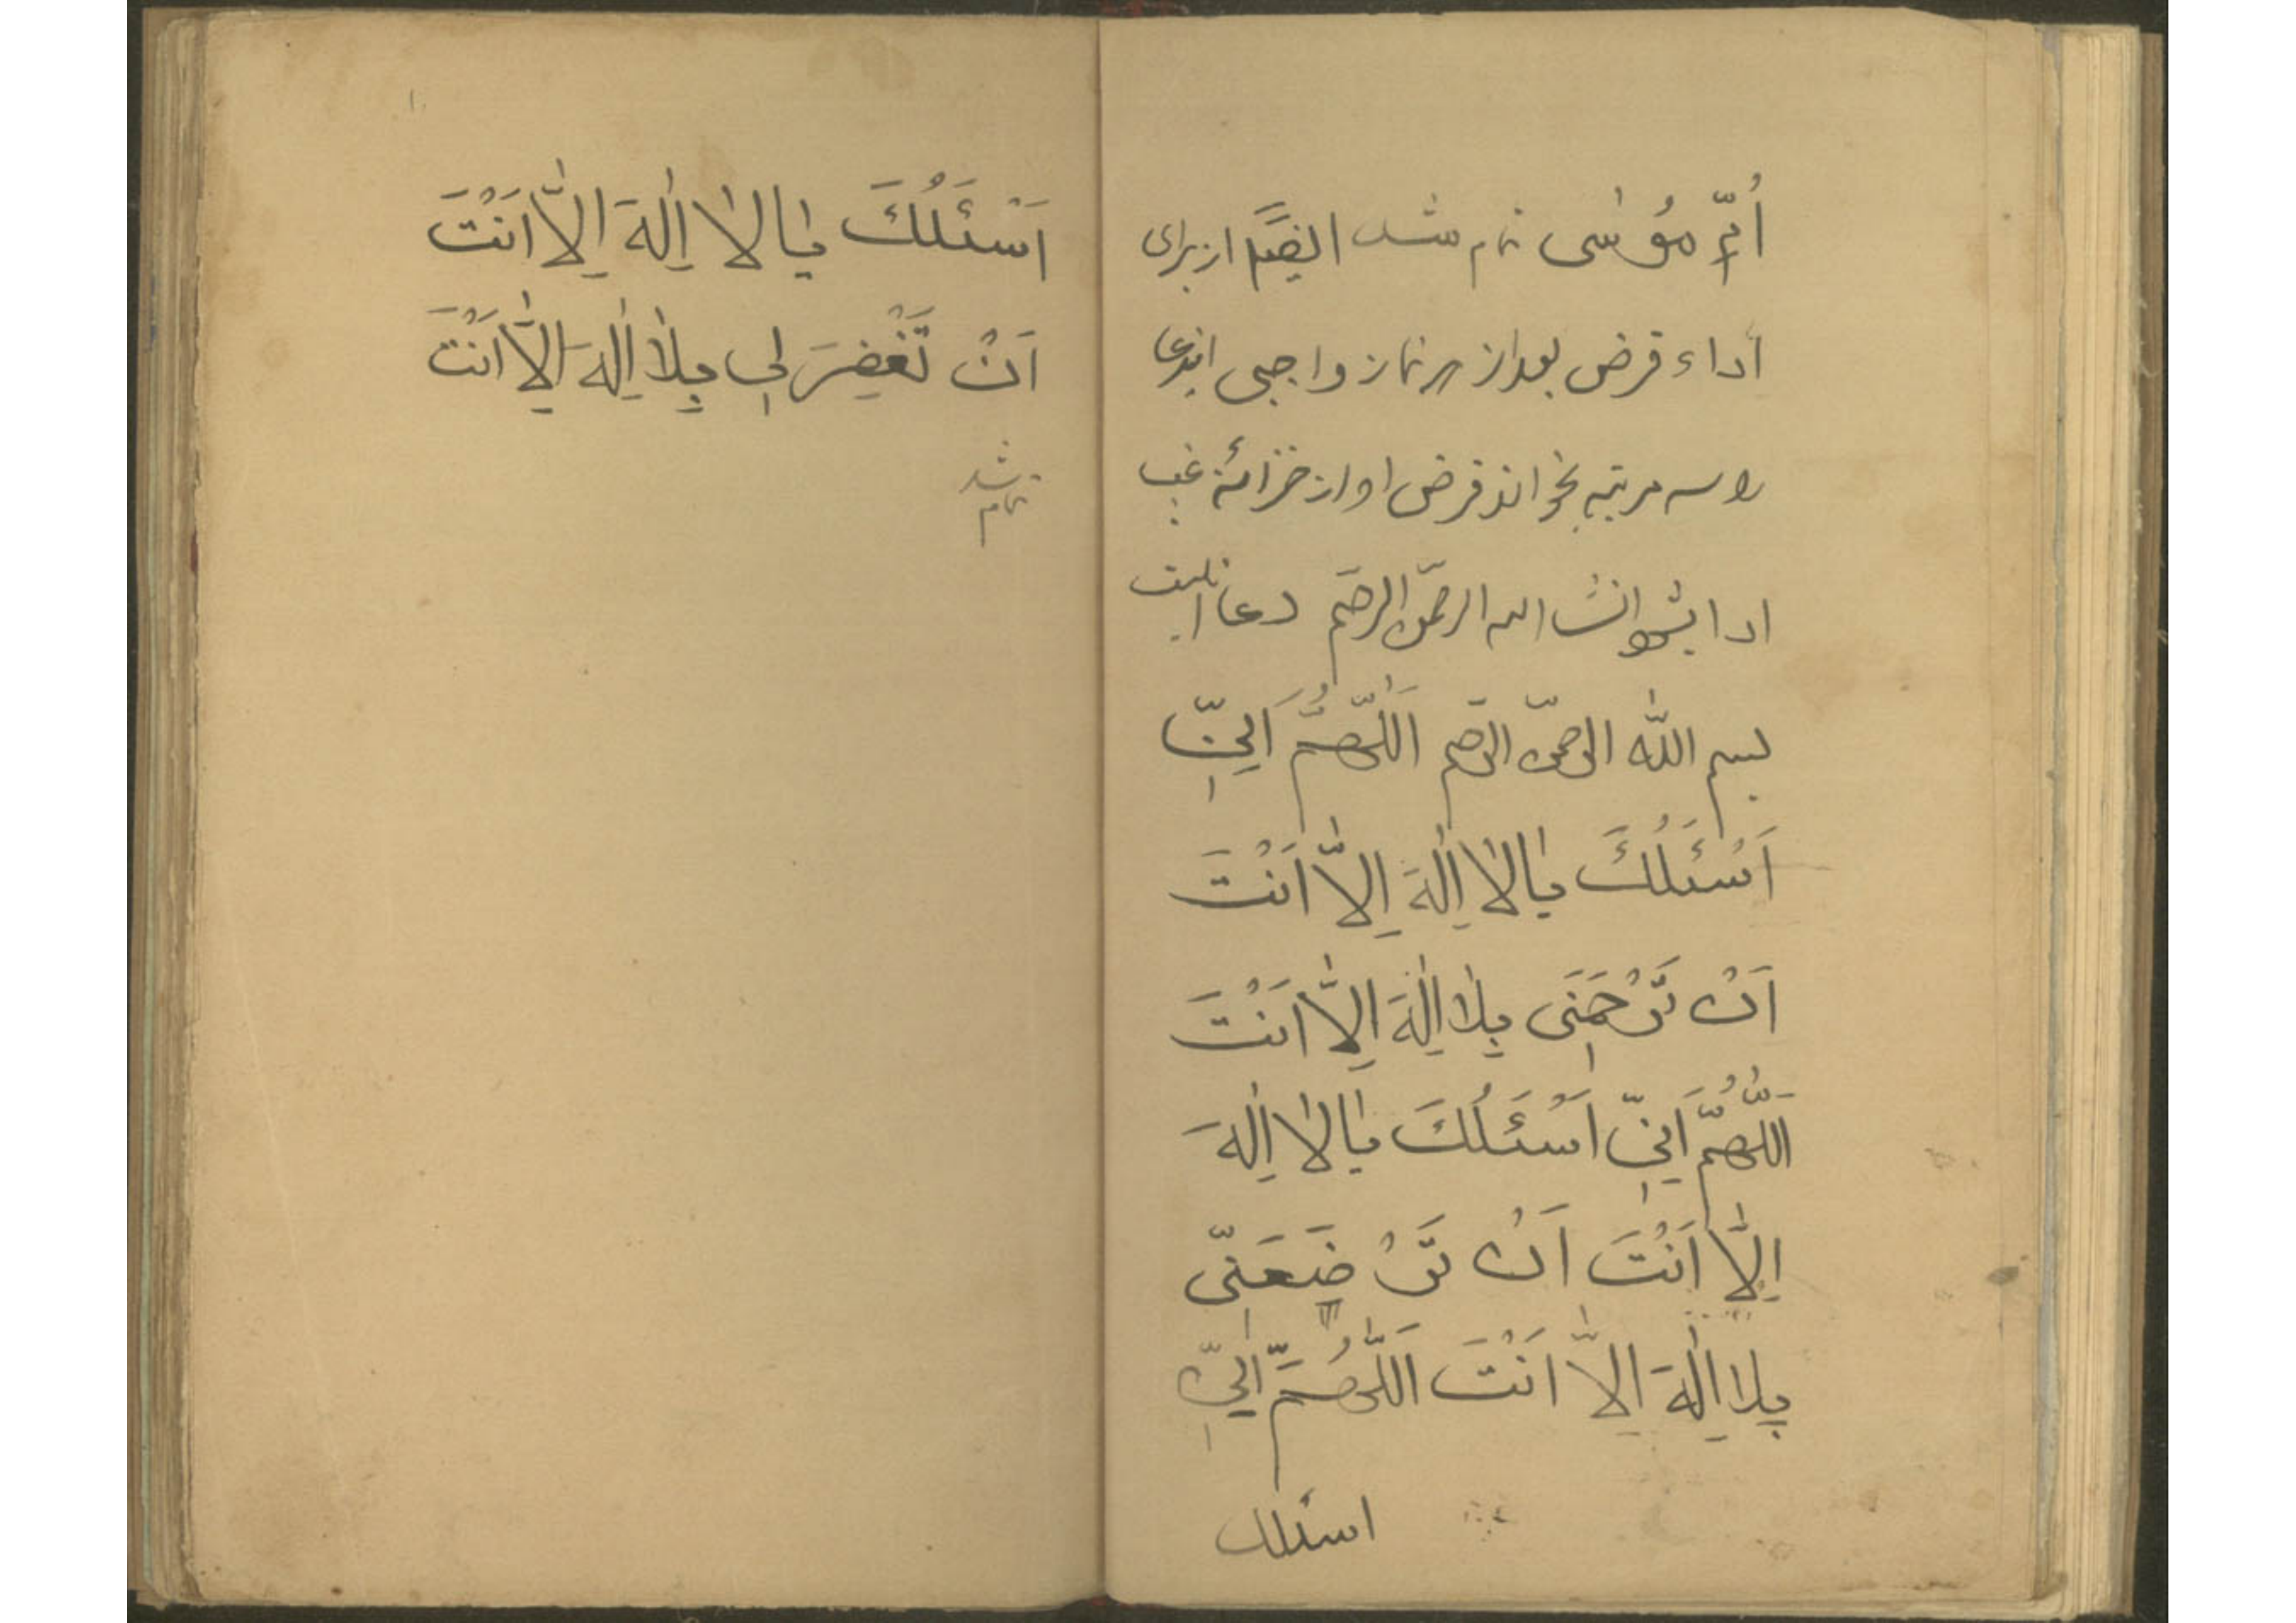 اُمِّ مُوسٰى تمام شد ايضاً از براى
اداء قرض بعد از هر نماز واجبى ايندعا
را سه مرتبه بخواند قرض او از خزائنه غيب
ادا بشود انشا الله الرحمّن الرحيم دعا اينست
بسم اللّٰه الرّحمن الرّحيم اَللّٰهُمَّ اَنِيّ
اَسْئَلُكَ يٰا لاٰ اِلٰهَ اِلّاٰ اَنْتَ
اَنْ تَرْحَمَنَى بِلاٰ اِلٰهَ اِلّاٰ اَنْتَ
اَللّٰهُمَّ اَنِيّ اَسْئَلُكَ يٰا لاٰ اِلٰهَ
اِلّاٰ اَنْتَ اَنْ تَرْضَ عَنّى
بِلا اِلٰهَ اِلاّٰ اَنْتَ اَللّٰهُمَّ اَنِيّ
اسئلك
اَسْئَلُكَ يٰا لاٰ اِلٰهَ اِلّاٰ اَنْتَ
اَنْ تَغْفِرَ لِى بِلاٰ اِلٰهَ اِلّاٰ اَنْتَ
تمام شد